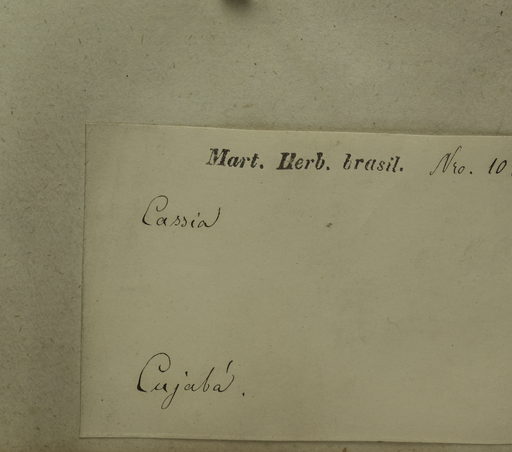 Mart. Herb. brasil. Nro. 10
Cassia
Cujabá.